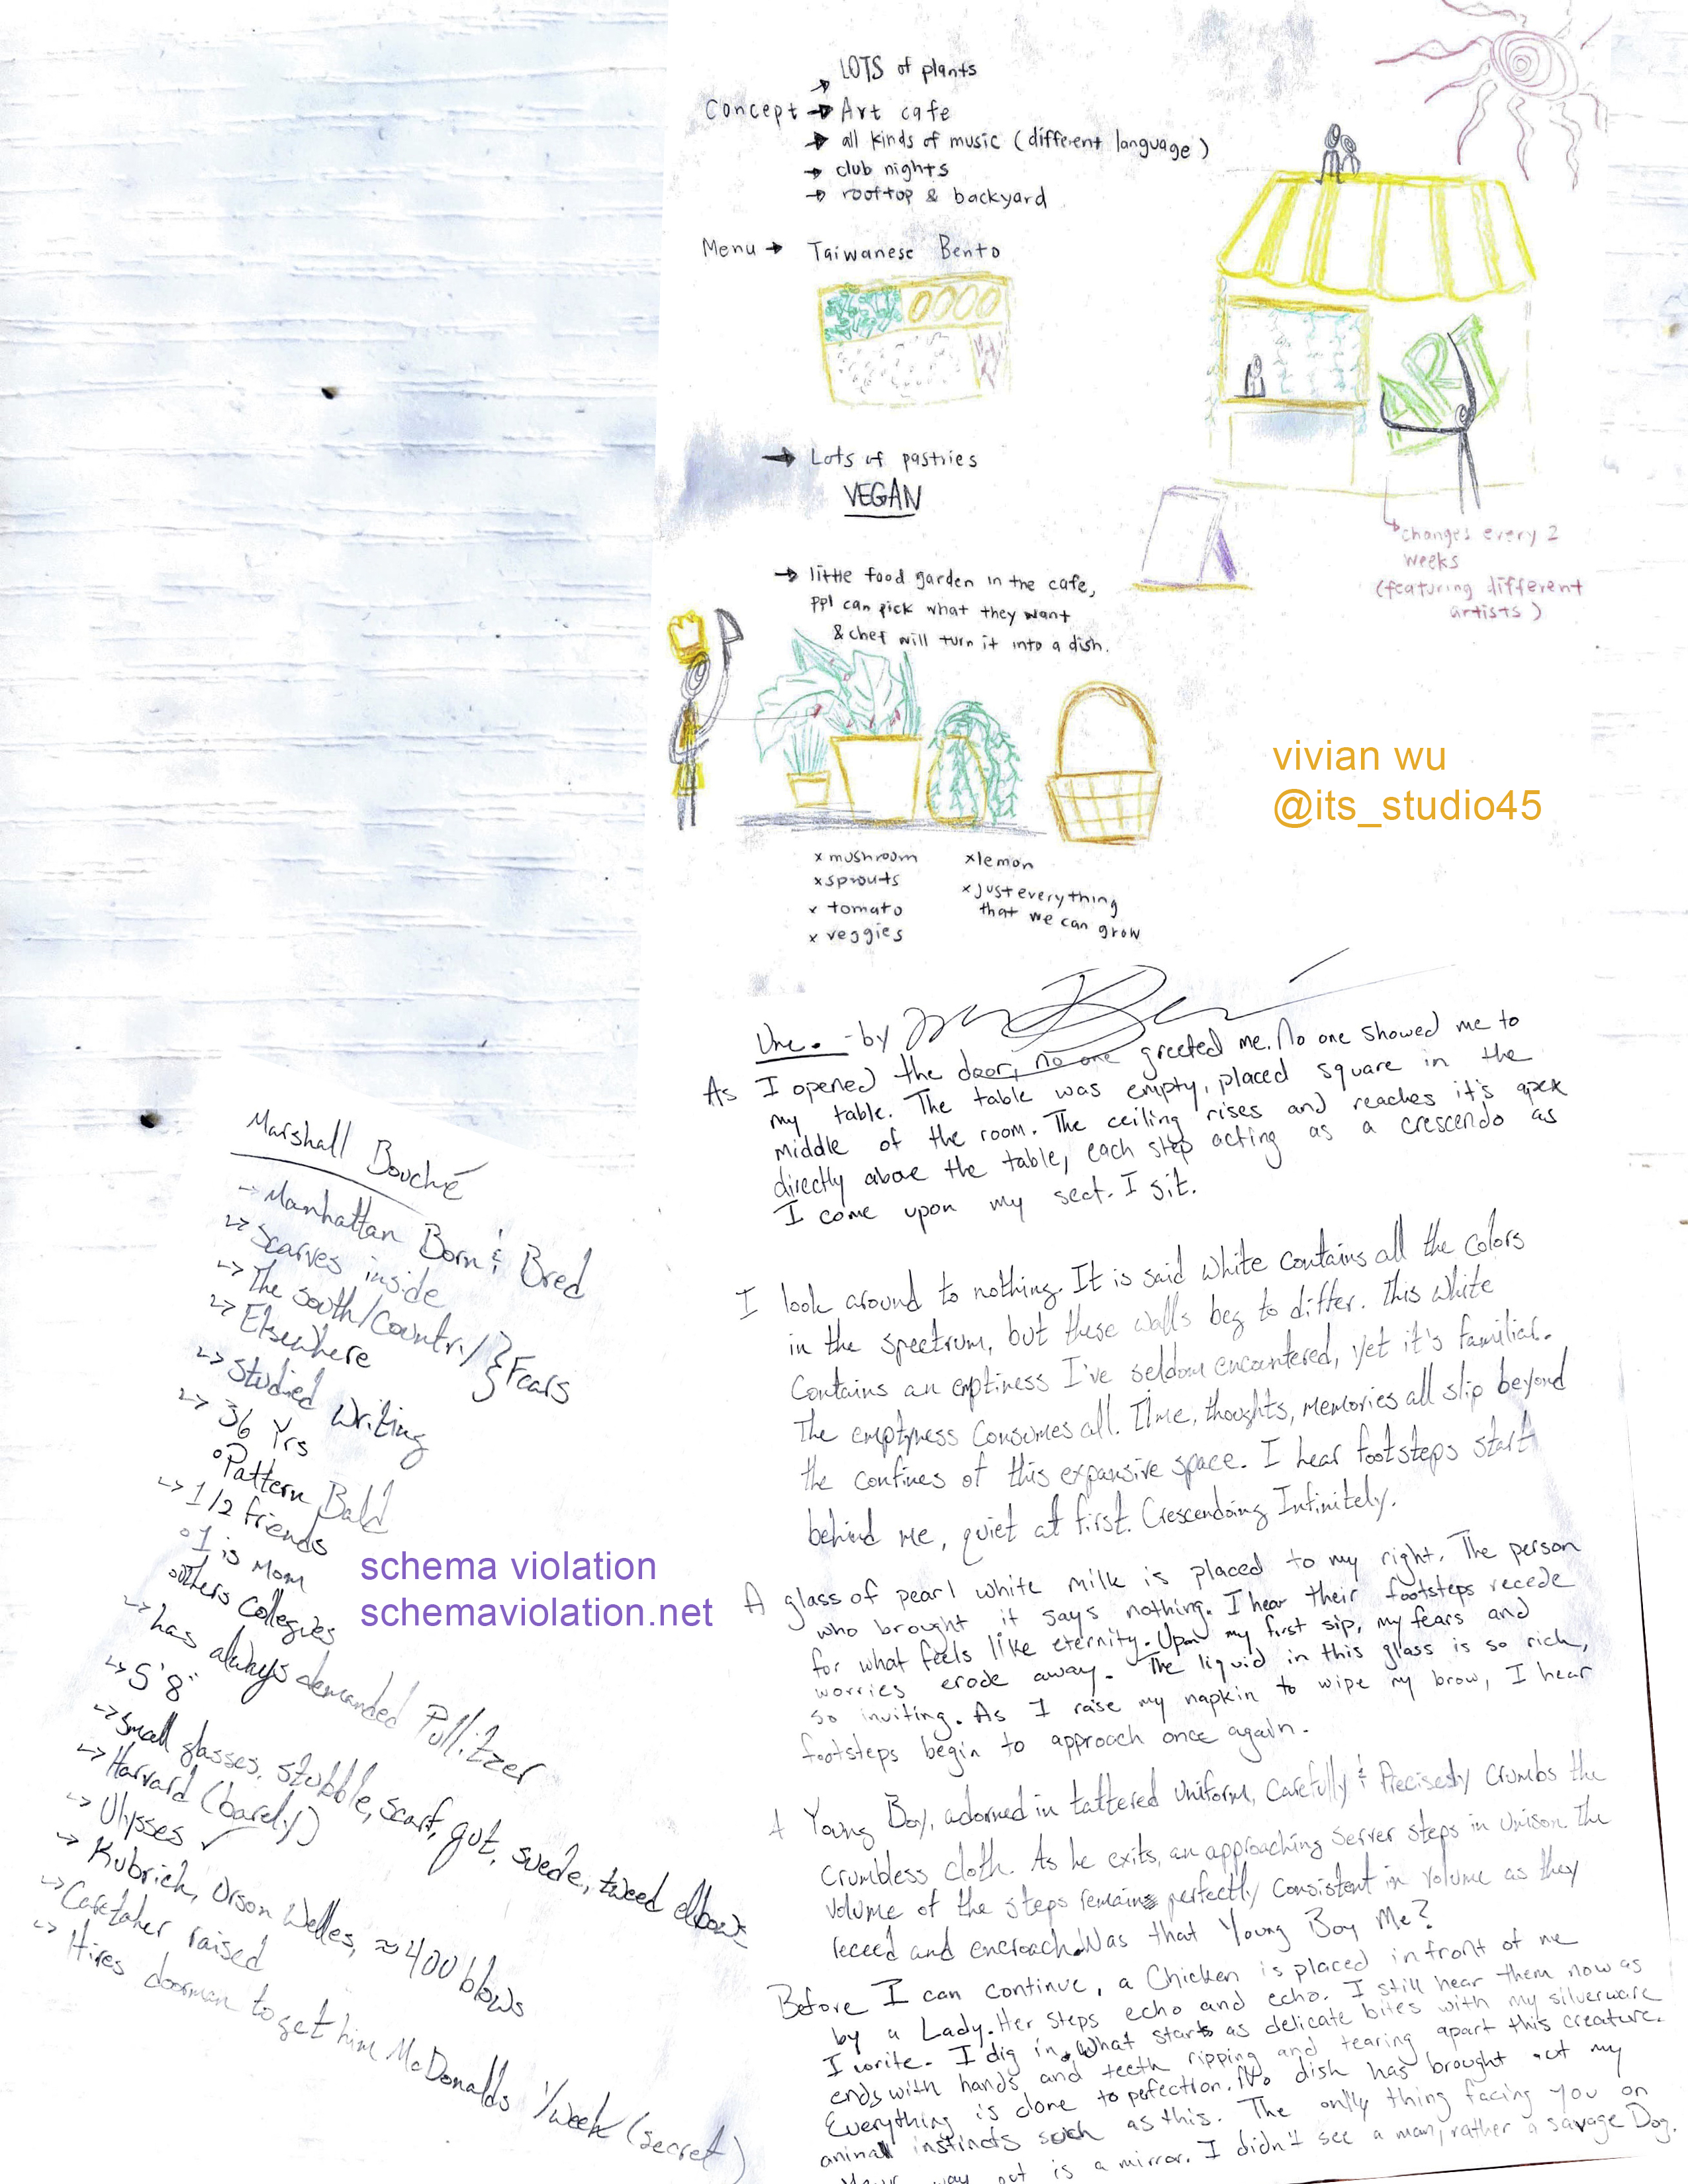 LOTS of plants
Concept → Art cafe
→ all kinds of music (different language)
→ club nights
→ rooftop & backyard
Menu → Taiwanese Bento
ART
→ Lots of pastries
VEGAN
changes every 2
weeks
(featuring different
artists)
→ little food garden in the cafe,
ppl can pick what they want
& chef will turn it into a dish.
vivian wu
@its_studio45
x mushroom
x sprouts
x tomato
x veggies
x lemon
x just everything
that we can grow
Une. - by
As I opened the door, no one greeted me. No one showed me to
my table. The table was empty, placed square in the
middle of the room. The ceiling rises and reaches it's apex
directly above the table, each step acting as a crescendo as
I come upon my seat. I sit.
I look around to nothing. It is said white contains all the colors
in the spectrum, but these walls beg to differ. This white
contains an emptiness I've seldom encountered, yet it's familiar.
The emptyness consumes all. Time, thoughts, memories all slip beyond
the confines of this expansive space. I hear footsteps start
behind me, quiet at first. Crescendoing Infinitely.
A glass of pearl white milk is placed to my right. The person
who brought it says nothing. I hear their footsteps recede
for what feels like eternity. Upon my first sip, my fears and
worries erode away. The liquid in this glass is so rich,
so inviting. As I raise my napkin to wipe my brow, I hear
footsteps begin to approach once again.
A Young Boy, adorned in tattered uniform, carefully & Precisesly crumbs the
crumbless cloth. As he exits, an approaching server steps in unison. The
volume of the steps remains perfectly consistent in volume as they
receed and encroach. Was that Young Boy Me?
Before I can continue, a Chicken is placed infront of me
by a Lady. Her steps echo and echo. I still hear them now as
I write. I dig in. What starts as delicate bites with my silverware
ends with hands and teeth ripping and tearing apart this creature.
Everything is done to perfection. No dish has brought out my
animal instincts such as this. The only thing facing you on
your way out is a mirror. I didn't see a man, rather a savage Dog.
Marshall Bouché
→ Manhattan Born & Bred
↳ Scarves inside
↳ The south/Country/ } Fears
↳ Elsewhere
↳ Studied Writing
↳ 36 Yrs
° Pattern Bald
↳ 1/2 friends
° 1 is Mom
° others collegies
↳ has always demanded Pullitzer
↳ 5'8"
↳ small glasses, stubble, scarf, gut, suede, tweed elbows
↳ Harvard (barely)
↳ Ulysses ✓
↳ Kubrich, Orson Welles, ≈ 400 blows
↳ Caretaker raised
↳ Hires doorman to get him McDonalds 1/week (secret)
schema violation
schemaviolation.net